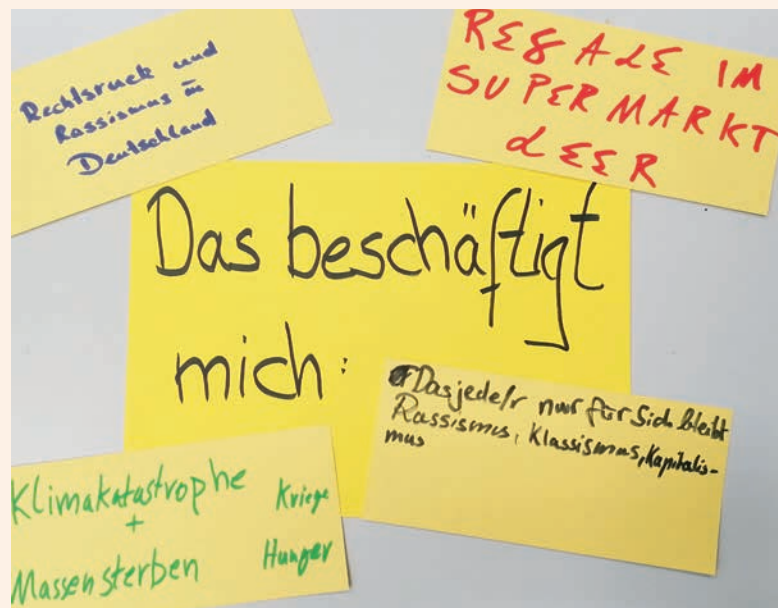 Rechtsruck und
Rassismus in
Deutschland
REGALE IM
SUPERMARKT
LEER
Das beschäftigt
mich:
Das jede/r nur für sich bleibt
Rassismus, Klassismus, Kapitalis-
mus
Klimakatastrophe Kriege
+
Massensterben Hunger